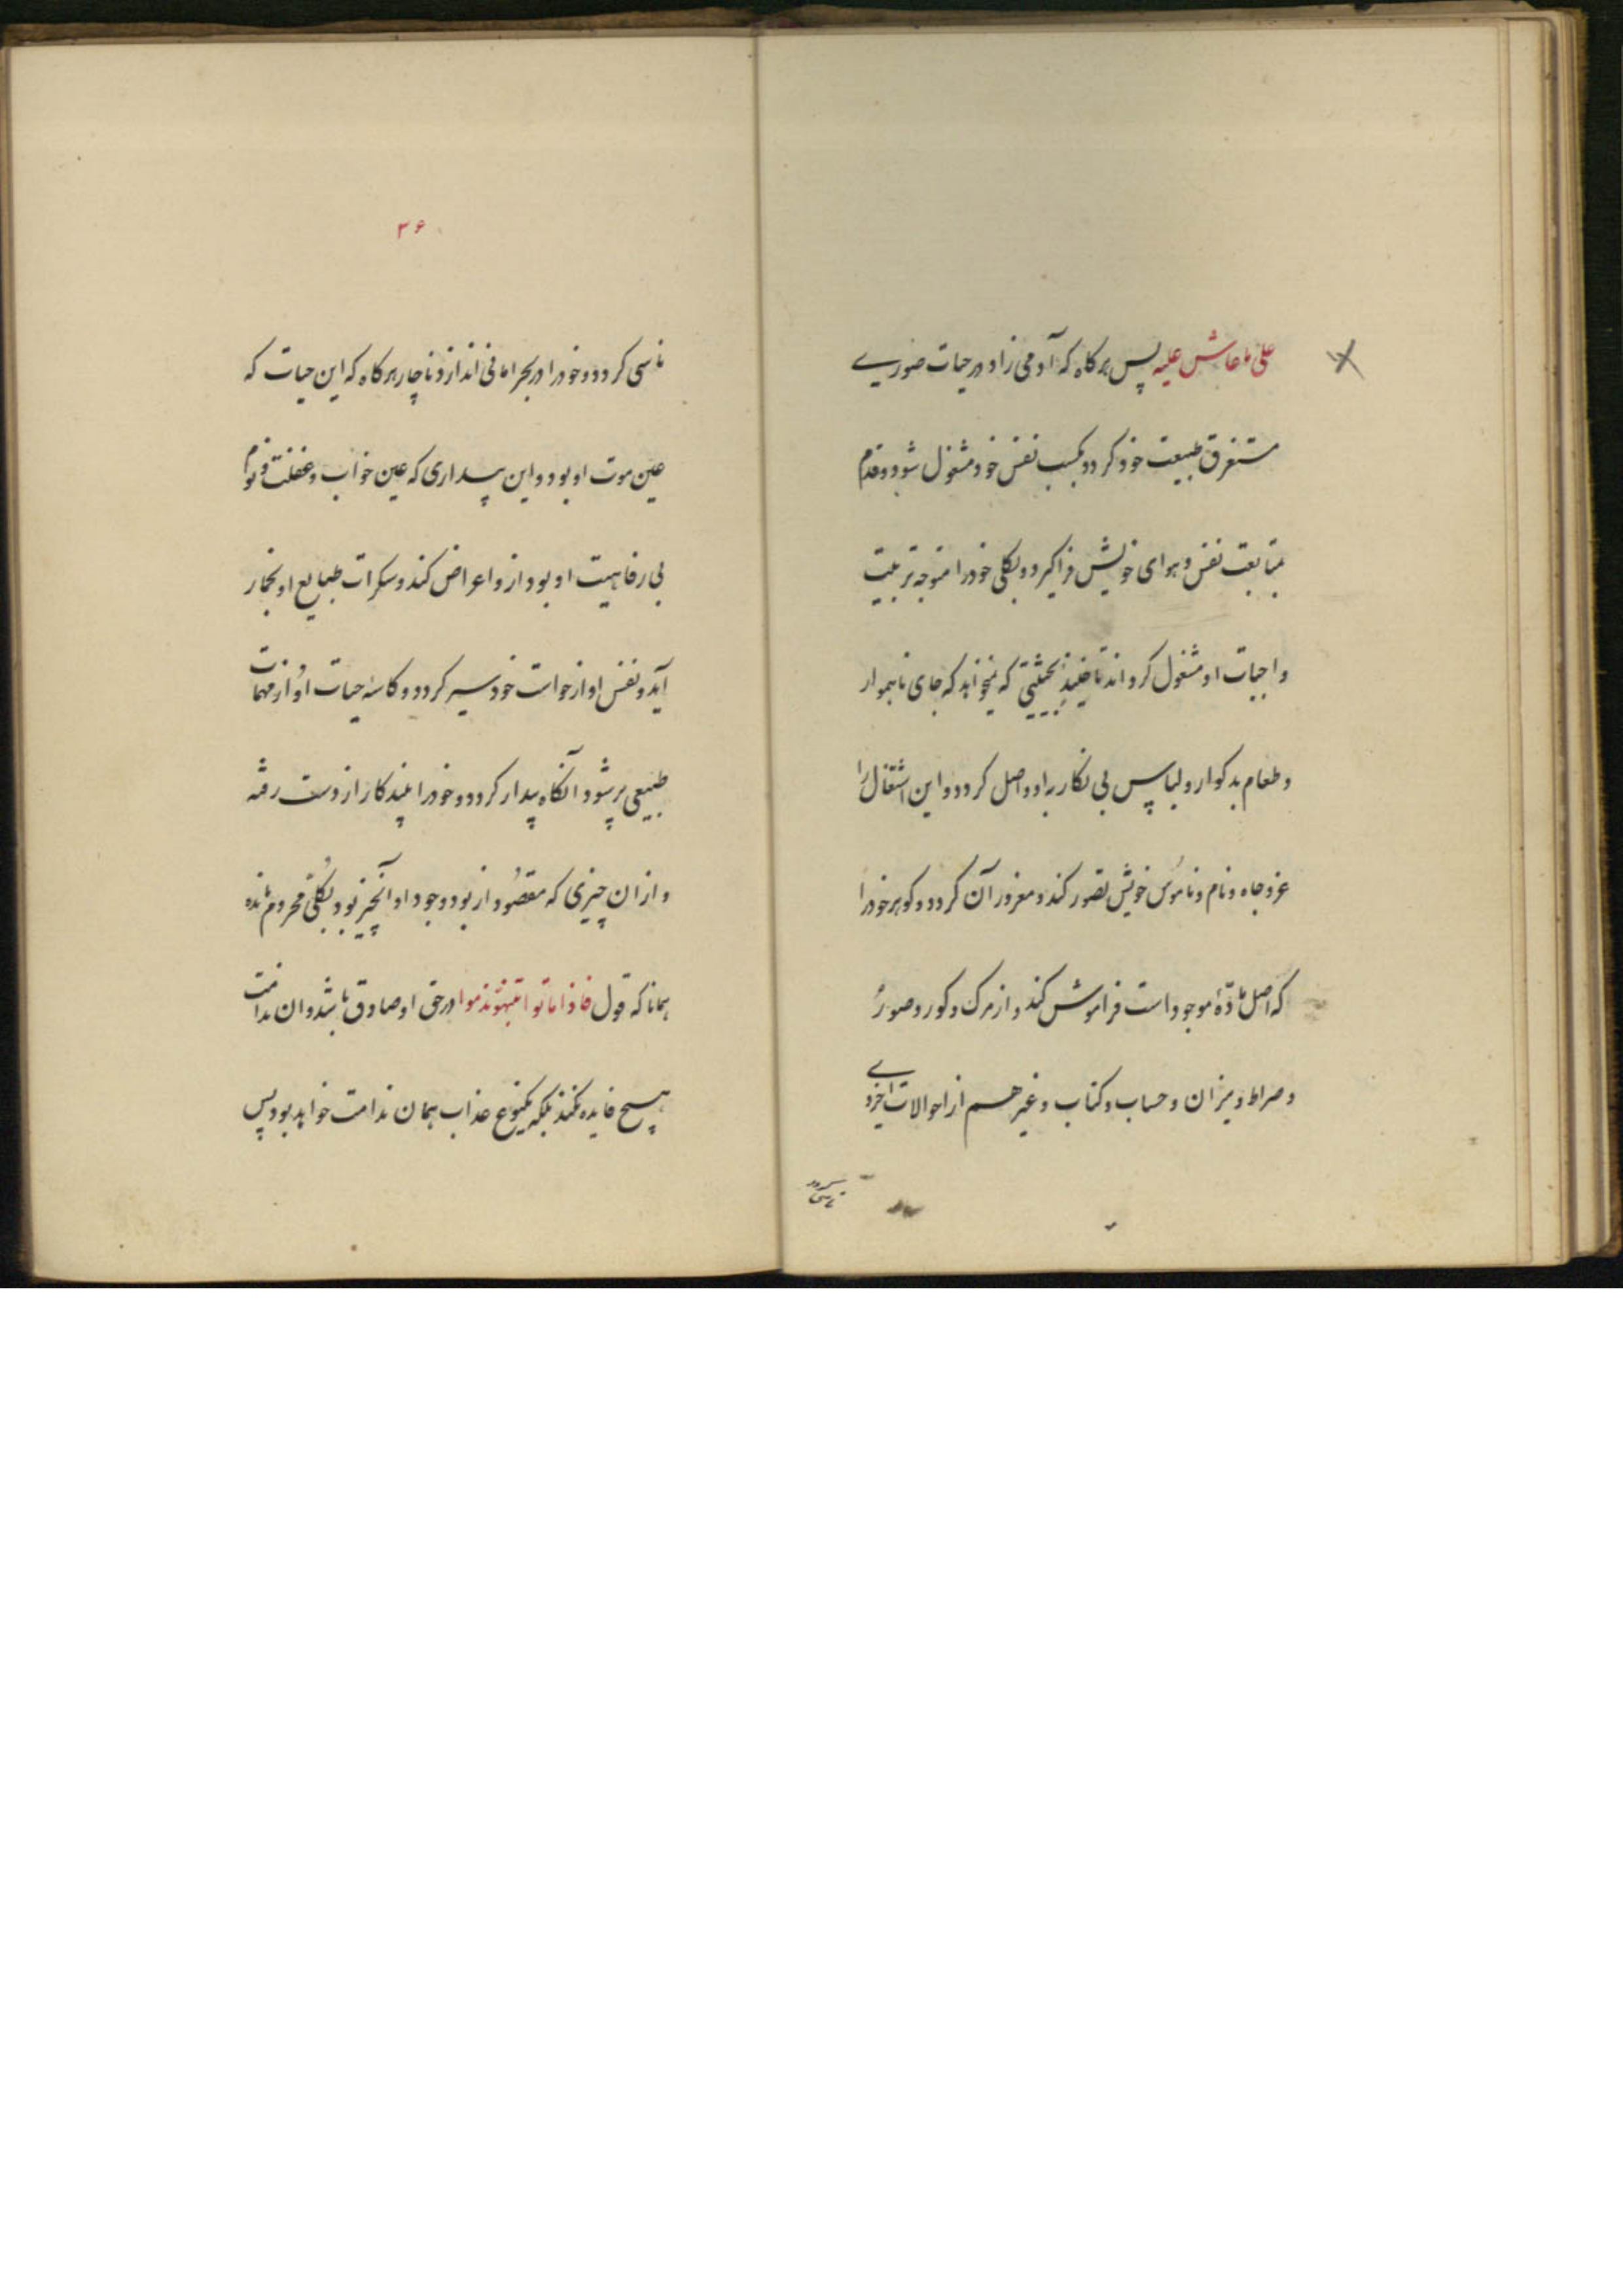 علی ما عاش علیه پس هرکاه که آدمی زاد در حیات صوری
مستغرق طبیعت خود کردد بکسب نفس خود مشغول شود و قدم
بمتابعت نفس و هوای خویش فراکیرد و بکلی خود را متوجه تربیت
واجبات او مشغول کرداند تا بحیثیتی که نمیخواهد که جای ناهموار
و طعام بدکوار و لباس بی نکار باو واصل کردد و این اشتغال را
عز و جاه و نام و ناموس خویش تصور کند و مغرور آن کردد و کوهر خود را
که اصل مادّهٔ موجود است فراموش کند و از مرک و کور و صور
و صراط و میزان و حساب و کتاب و غیرهم از احوالات اخروی
ناسی
۳۶
ناسی کردد و خود را در بحر امانی اندازد ناچار هرکاه که این حیات که
عین موت او بود و این بیداری که عین خواب و غفلت و نوم
بی رفاهیت او بود ازو اعراض کند و سکرات طبایع او بخمار
آید و نفس او از خواست خود سیر کردد و کاسهٔ حیات او از مهمات
طبیعی پر شود آنکاه بیدار کردد و خود را بیند کار از دست رفته
و از ان چیزی که مقصود از بود وجود او آنچیز بود بکلی محروم مانده
همانا که قول فاذا ماتوا انتبهوا ندموا در حق او صادق باشد و ان ندامت
هیچ فایده نکند بلکه یکنوع عذاب همان ندامت خواهد بود پس